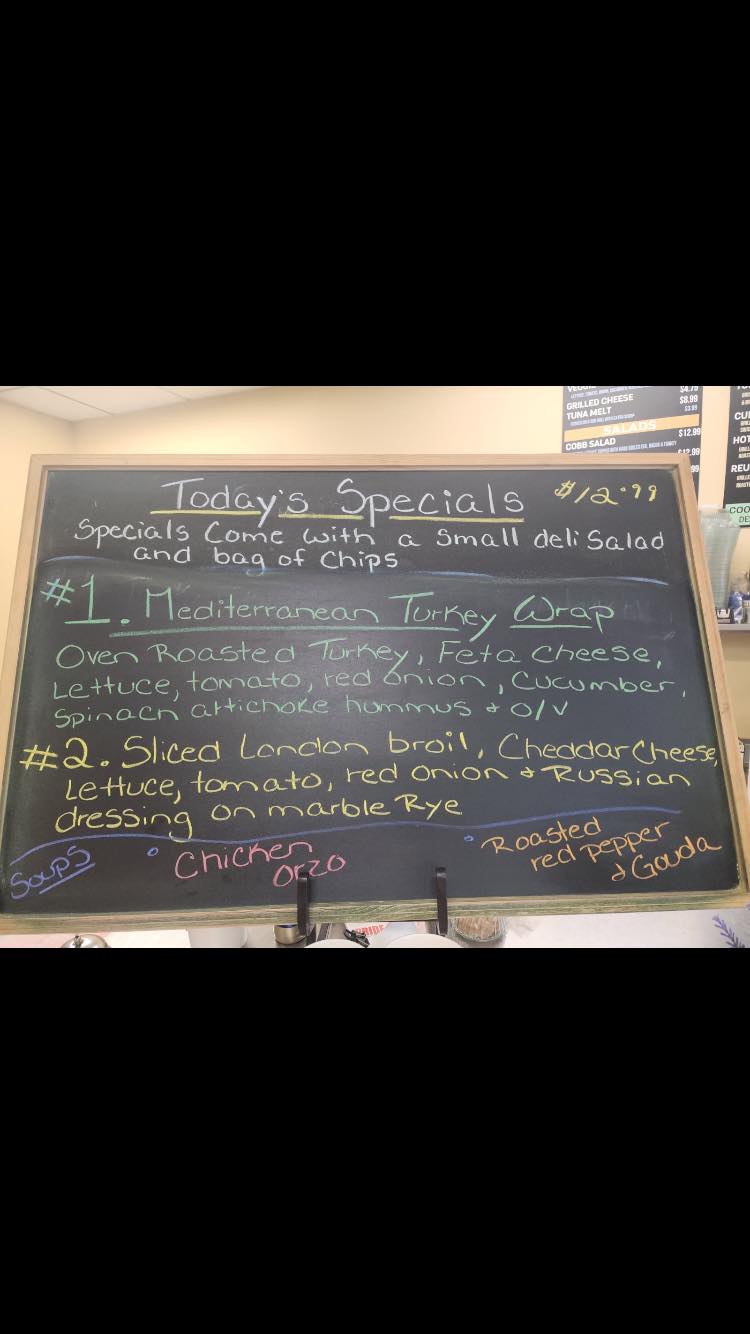 GRILLED CHEESE $8.99
TUNA MELT
SALADS
COBB SALAD $12.99
Today's Specials $12.99
Specials Come with a Small deli Salad
and bag of Chips
#1. Mediterranean Turkey Wrap
Oven Roasted Turkey, Feta Cheese,
Lettuce, tomato, red onion, Cucumber,
Spinach artichoke hummus & O/V
#2. Sliced London broil, Cheddar Cheese,
Lettuce, tomato, red onion & Russian
dressing on marble Rye
Soups
Chicken
Orzo
Roasted
red pepper
& Gouda